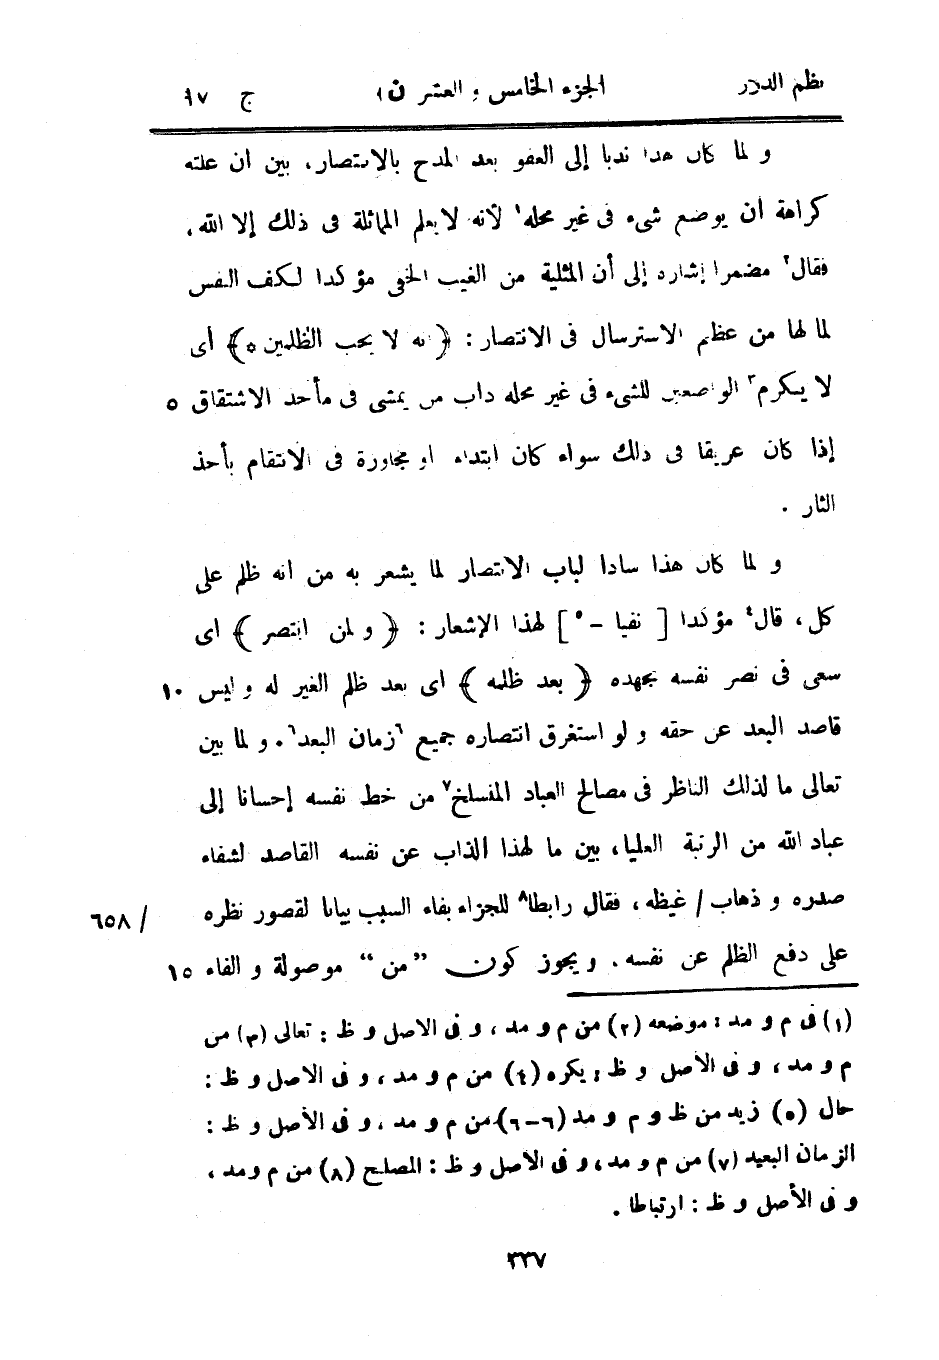 نظم الدرر الجزء الخامس و العشرون ج ١٧
و لما كان هذا ندبا إلى العفو بعد المدح بالانتصار، بين أن علته
كراهة أن يوضع شيء فى غير محله١ لأنه لا يعلم المماثلة فى ذلك إلا الله،
فقال٢ مضمرا إشارة إلى أن المثلية من الغيب الخفى مؤكدا لكف النفس
لما لها من عظيم الاسترسال فى الانتصار : ﴿ انه لا يحب الظلمين ٥﴾ أى
لا يكرم٣ الواضعين للشىء فى غير محله دأب من يمشى فى مأخذ الاشتقاق ٥
إذا كان عريقا فى ذلك سواء كان ابتداء أو مجاوزة فى الانتقام بأخذ
الثار .
و لما كان هذا سادا لباب الانتصار لما يشعر به من أنه ظلم على
كل، قال٤ مؤكدا [ نفيا - ٥ ] لهذا الإشعار : ﴿ و لمن انتصر ﴾ أى
سعى فى نصر نفسه بجهده ﴿ بعد ظلمه ﴾ أى بعد ظلم الغير له و ليس ١٠
قاصد البعد عن حقه و لو استغرق انتصاره جميع ٦زمان البعد٦. و لما بين
تعالى ما لذلك الناظر فى مصالح العباد المنسلخ٧ من خط نفسه إحسانا إلى
عباد الله من الرتبة العليا، بين ما لهذا الذاب عن نفسه القاصد لشفاء
صدره و ذهاب / غيظه، فقال رابطا٨ للجزاء بفاء السبب بيانا لقصور نظره / ٦٥٨
على دفع الظلم عن نفسه. و يجوز كون ”من“ موصولة و الفاء ١٥
(١) فى م و مد : موضعه (٢) من م و مد ، و فى الاصل و ظ : تعالى (٣) من
م و مد ، و فى الأصل و ظ : يكره (٤) من م و مد ، و فى الاصل و ظ :
حال (٥) زيد من ظ و م و مد (٦-٦) من م و مد ، و فى الأصل و ظ :
الزمان البعيد (٧) من م و مد ، و فى الاصل و ظ : المصلح (٨) من م و مد ،
و فى الأصل و ظ : ارتباطا .
٣٣٧